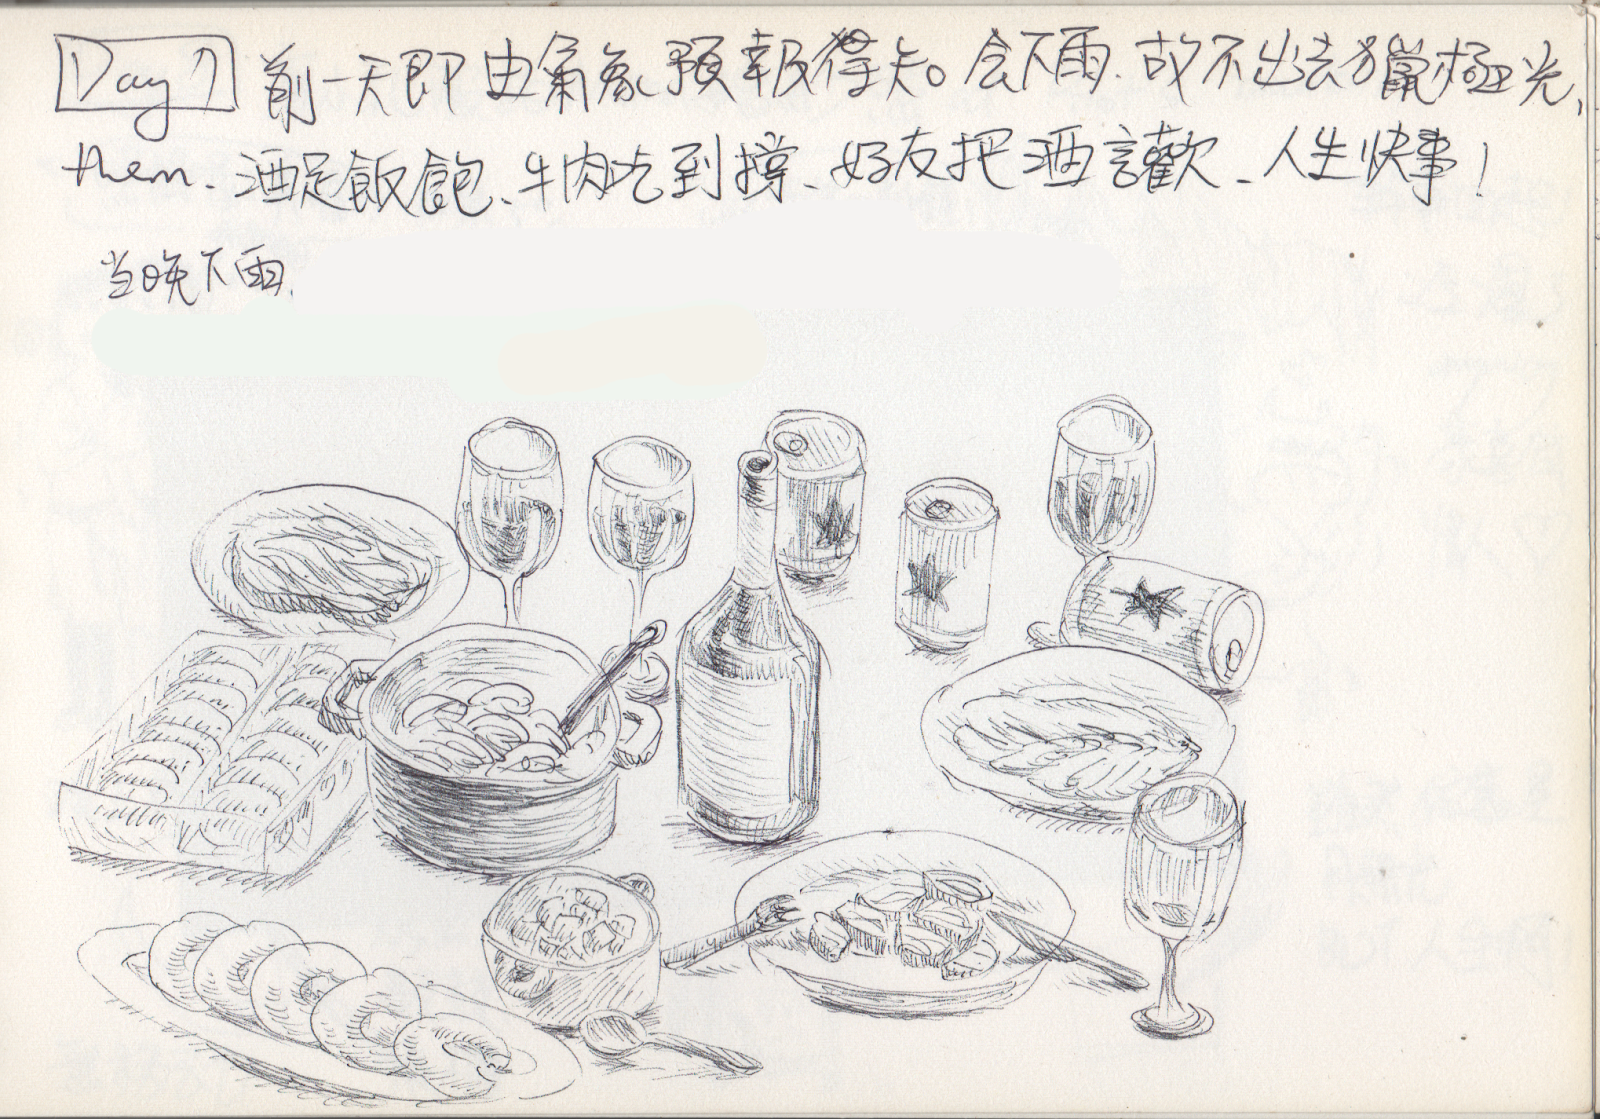 Day 7 前一天即由氣象預報得知。会下雨.故不出去獵極光,
then.酒足飯飽、牛肉吃到撐、好友把酒言歡、人生快事!
当晚下雨.